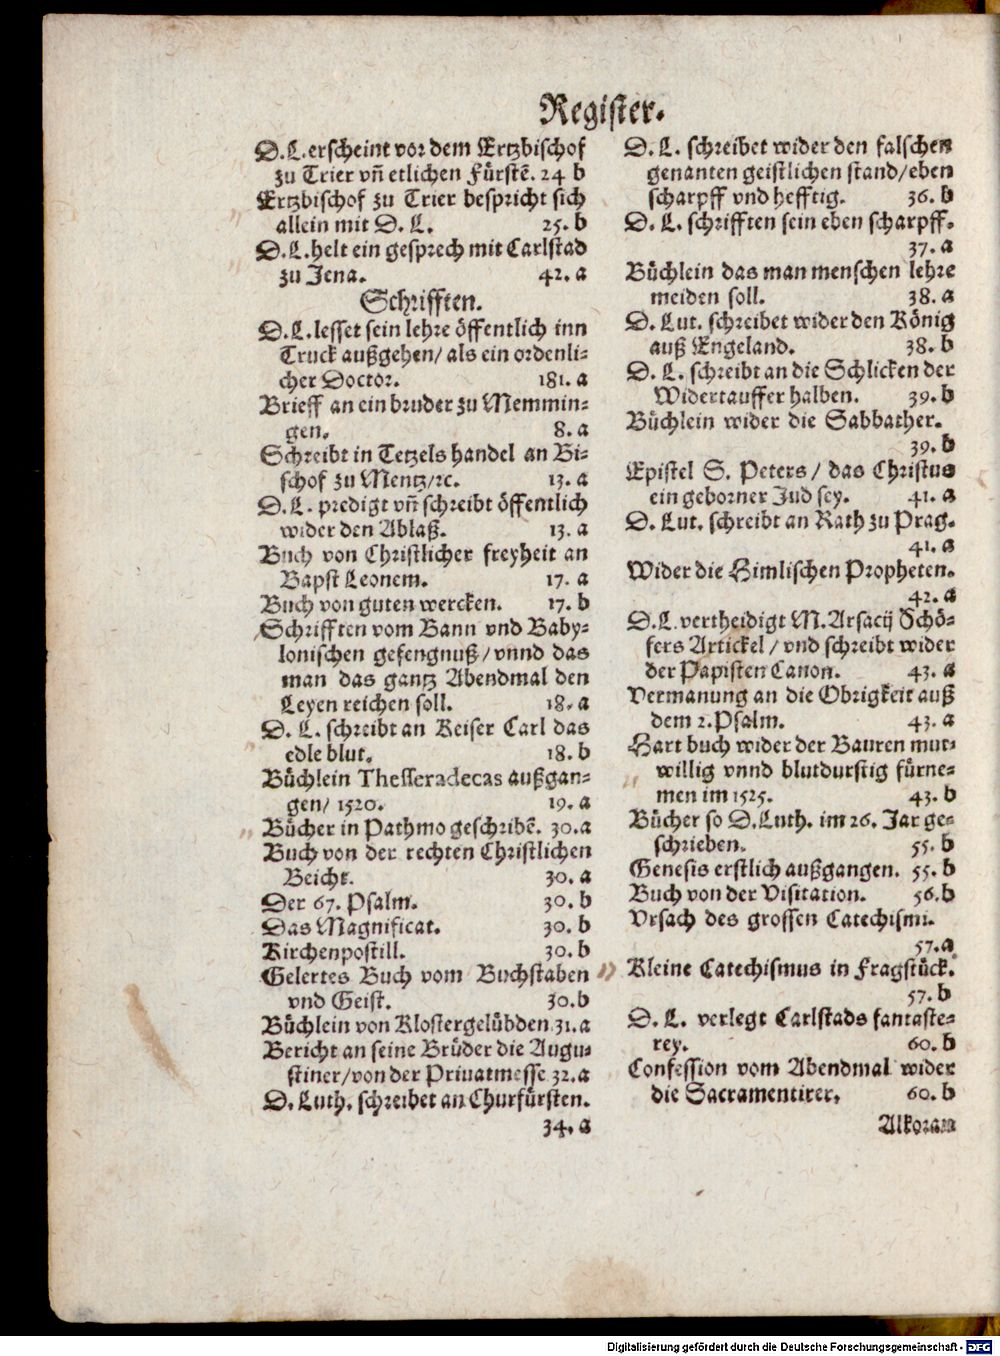 Register.
D. L. erscheint vor dem Ertzbischof
zu Trier vñ etlichen Fürstẽ. 24 b
Ertzbischof zu Trier bespricht sich
allein mit D. L. 25. b
D. L. helt ein gesprech mit Carlstad
zu Jena. 42. a
Schrifften.
D. L. lesset sein lehre öffentlich inn
Truck außgehen/ als ein ordenli-
cher Doctor. 181. a
Brieff an ein bruder zu Memmin-
gen. 8. a
Schreibt in Tetzels handel an Bi-
schof zu Mentz/ꝛc. 13. a
D. L. predigt vñ schreibt öffentlich
wider den Ablaß. 13. a
Buch von Christlicher freyheit an
Bapst Leonem. 17. a
Buch von guten wercken. 17. b
Schrifften vom Bann vnd Baby-
lonischen gefengnuß/ vnnd das
man das gantz Abendmal den
Leyen reichen soll. 18. a
D. L. schreibt an Keiser Carl das
edle blut. 18. b
Büchlein Thesseradecas außgan-
gen/ 1520. 19. a
Bücher in Pathmo geschribẽ. 30. a
Buch von der rechten Christlichen
Beicht. 30. a
Der 67. Psalm. 30. b
Das Magnificat. 30. b
Kirchenpostill. 30. b
Gelertes Buch vom Buchstaben
vnd Geist. 30. b
Büchlein von Klostergelübden 31. a
Bericht an seine Brüder die Augu-
stiner/ von der Priuatmesse 32. a
D. Luth. schreibet an Churfürsten.
34. a
D. L. schreibet wider den falschen
genanten geistlichen stand/ eben
scharpff vnd hefftig. 36. b
D. L. schrifften sein eben scharpff.
37. a
Büchlein das man menschen lehre
meiden soll. 38. a
D. Lut. schreibet wider den König
auß Engeland. 38. b
D. L. schreibt an die Schlicken der
Widertauffer halben. 39. b
Büchlein wider die Sabbather.
39. b
Epistel S. Peters / das Christus
ein geborner Jud sey. 41. a
D. Lut. schreibt an Rath zu Prag.
41. a
Wider die Himlischen Propheten.
42. a
D. L. vertheidigt M. Arsacij Schö-
fers Artickel / vnd schreibt wider
der Papisten Canon. 43. a
Vermanung an die Obrigkeit auß
dem 2. Psalm. 43. a
Hart buch wider der Bauren mut-
willig vnnd blutdurstig fürne-
men im 1525. 43. b
Bücher so D. Luth. im 26. Jar ge-
schrieben. 55. b
Genesis erstlich außgangen. 55. b
Buch von der Visitation. 56. b
Vrsach des grossen Catechismi.
57. a
Kleine Catechismus in Fragstück.
57. b
D. L. verlegt Carlstads fantaste-
rey. 60. b
Confession vom Abendmal wider
die Sacramentirer. 60. b
Alkoran
Digitalisierung gefördert durch die Deutsche Forschungsgemeinschaft - DFG